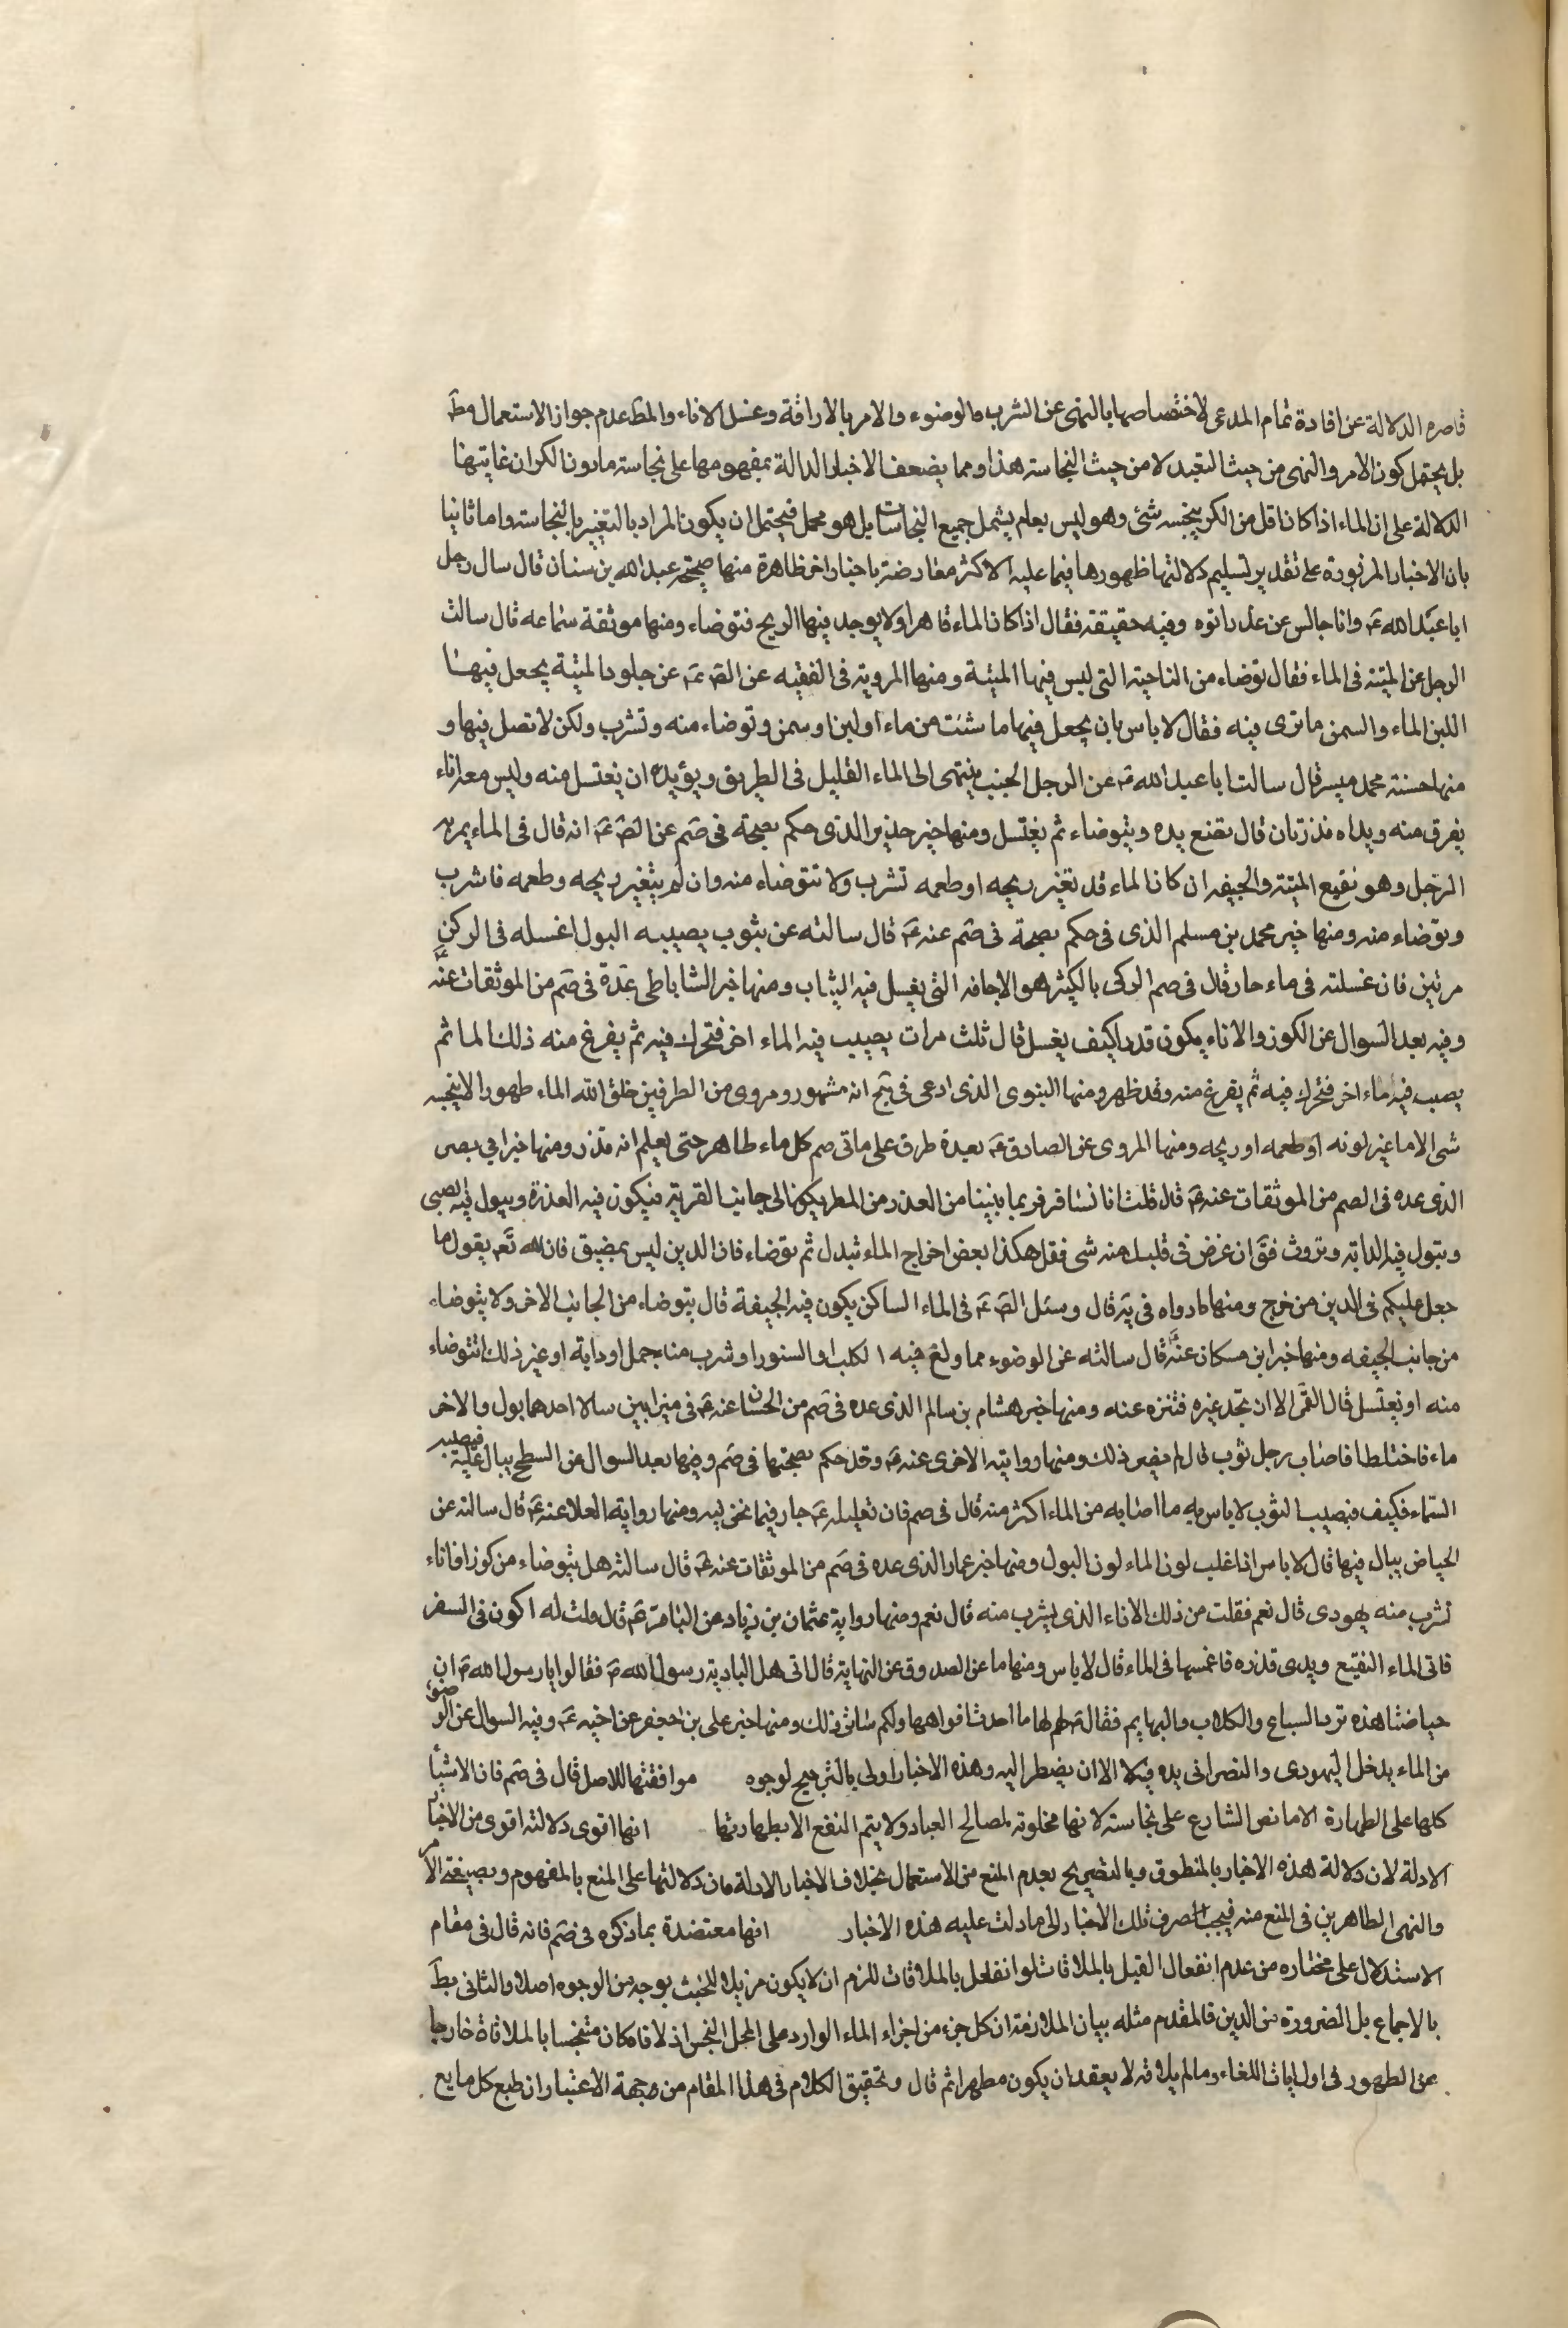 قاصره الدلالة عن افادة تمام المدعى لاختصاصها بالنهى عن الشرب والوضوء والامر بالاراقة وغسل الاناء والمط عدم جواز الاستعمال مط
بل يحتمل كون الامر والنهى من حيث التعبد لا من حيث النجاسته هذا ومما يضعف الاخبار الدالة بمفهومها على نجاسته مادون الكر ان غايتها
الدلالة على ان الماء اذا كان اقل من الكر ينجسه شئ وهو ليس بعام يشمل جميع النجاسات بل هو مجمل فيحتمل ان يكون المراد بالتغيير بالنجاسته واما ثانيا
بان الاخبار المزبورة على تقدير تسليم دلالتها ظهورها فيما عليه الاكثر معارضة باخبار اخر ظاهرة منها صحيحة عبد الله بن سنان قال سال رجل
ابا عبد الله ع وانا جالس عن غدير اتوه وفيه حقيقته فقال اذا كان الماء قاهرا ولا يوجد فيها الريح فتوضاء ومنها موثقة سماعه قال سالت
الرجل عن الميتة فى الماء فقال توضاء من الناحيته التى ليس فيها الميتة ومنها المرويته فى الفقيه عن الص ع عن جلود الميتة يجعل فيها
اللبن الماء والسمن ما ترى فيه فقال لا باس بان يجعل فيها ما شئت من ماء او لبن او سمن وتوضاء منه وتشرب ولكن لا تصل فيها و
منها حسنته محمد ميسر قال سالت ابا عبد الله ع عن الرجل الجنب ينتهى الى الماء القليل فى الطريق ويؤيده ان يغتسل منه وليس معه اناء
يغرق منه ويداه قذرتان قال يقنع يده ويتوضاء ثم يغتسل ومنها خبر حذير الذى حكم بصحة فى صم عن الص ع انه قال فى الماء يمر به
الرجل وهو نقيع الميتة والجيفه ان كان الماء قد تغير ريحه او طعمه تشرب ولا تتوضاء منه وان لم يتغير ريحه وطعمه فاشرب
وتوضاء منه ومنها خبر محمد بن مسلم الذى فى حكم بصحة فى صم عنه ع قال سالته عن بثوب يصيبه البول اغسله فى الركن
مرتين فان غسلته فى ماء جار قال فى صم الركى بالكيثر هو الاجافه التى يغسل فيه الثياب ومنها خبر الشاباطى عده فى صم من الموثقات عنه
وفيه بعد السوال عن الكوز والاناء يكون قدرا كيف يغسل قال ثلث مرات يصيب فيه الماء اخر فتحرك فيه ثم يفرغ منه ذلك الما ثم
يصيب فيه ماء اخر فتحرك فيه ثم يفرغ منه وقد ظهر ومنها النبوى الذى ادعى فى انه مشهور ومروى من الطرفين خلق الله الماء طهورا لا ينجسه
شى الا ما غير لونه او طعمه او ريحه ومنها المروى عن الصادق ع بعدة طرق على ما فى صم كل ماء طاهر حتى يعلم انه قذر ومنها خبر ابى بصير
الذى عده فى الصم من الموثقات عنه ع قال قلت انا نسافر فربما بنينا من العذر من المطر يكون الى جانب القرية فيكون فيه العذرة ويبول فيه الصبى
وتبول فيه الدابه وتروث فق ان عرض فى قلبك منه شى فقل هكذا يعض اخراج الماء تبدل ثم توضاء فان الدين ليس بمضيق فان الله تع يقول ما
جعل عليكم فى الدين من خرج ومنها ما رواه فى يه قال وسئل الص ع فى الماء الساكن يكون فيه الجيفة قال يتوضاء من الجانب الاخر ولا يتوضاء
من جانب الجيفه ومنها خبر ابن مسكان عنه قال سالته عن الوضوء مما ولغ فيه الكلب او السنور او شرب منه جمل او دابة او غير ذلك اتتوضاء
منه او يغتسل قال القم الا ان تجد غيره فتنزه عنه ومنها خبر هشام بن سالم الذى عده فى صم من الحسان عنه ع فى ميزابين سالا احدهما بول والاخر
ماء فاختلطا فاصاب رجل ثوب قال لم يضر ذلك ومنها وروايته الاخرى عنه ع وقد حكم بصحتها فى صم وفيها بعد السوال من السطح يبال عليه فيصيبه
السماء فكيف فيصيب الثوب لا باس به ما اصابه من الماء اكثر منه قال فى صم فان تعليله ع جار فيما نحن فيه ومنها رواية العلا عنه ع قال سالته عن
الحياض يبال فيها قال لا باس اذا غلب لون الماء لون البول ومنها خبر عمار الذى عده فى صم من الموثقات عنه ع قال سالته هل يتوضاء من كوز افاناء
تشرب منه يهودى قال نعم فقلت من ذلك الاناء الذى يشرب منه قال نعم ومنها رواية عثمان بن زياد عن الباقر ع قال قلت له اكون فى السفر
فاتى الماء النقيع ويدى قذره فاغمسها فى الماء قال لا باس ومنها ما عن الصدوق عن النهايته قال اتى هل الباديه رسول الله ص فقالوا يا رسول الله ص ان
حياضنا هذه ترد السباع والكلاب والبهايم فقال ص لهم لها ما احدث افواهها ولكم سائر ذلك ومنها خبر على بن جعفر عن اخيه ع وفيه السوال عن الوضوء
من الماء يدخل اليهودى والنصرانى يده فيه لا الا ان يضطر اليه وهذه الاخبار اولى بالترجيح لوجوه موافقتها للاصل قال فى صم فان الاشيأ
كلها على الطهارة الا ما نص الشارع على نجاسته لانها مخلوته لمصالح العباد ولا يتم النفع الا بطهارتها انها اقوى دلالته اقوى من الاخبار
الادلة لان دلالة هذه الاخبار بالمنطوق وبالتصريح بعدم المنع من الاستعمال بخلاف الاخبار الادلة فان دلالتها على المنع بالمفهوم وبصيغتى الامر
والنهى الظاهرين فى المنع منه فيجب الصرف تلك الاخبار الى ما دلت عليه هذه الاخبار انها معتضدة بما ذكره فى صم فانه قال فى مقام
الاستدلال على مختاره من عدم انفعال القيل بالملاقات لو انفعل بالملاقات للزم ان لا يكون مزيلا للخبث بوجه من الوجوه اصلا والثانى بط
بالاجماع بل الضرورة من الدين فالمقدم مثله بيان الملازمة ان كل جزء من اجزاء الماء الوارد على المحل النجس اذ لاقاه كان متنجسا بالملاقاة خارجا
عن الطهور فى اول ايات اللقاء وما لم يلاقه لا يعقد ان يكون مطهرا ثم قال وتحقيق الكلام فى هذا المقام من جهة الاعتبار ان طبع كل مايع